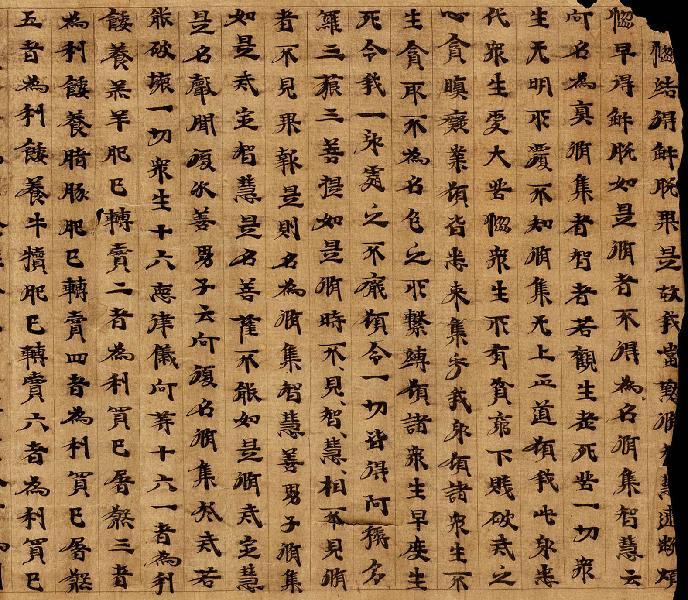 惱結得解脫果是故我當懃脩於智慧速斷煩
惱早得解脫如是脩者不得為名脩集智慧云
何名為真脩集者智者若觀生老死苦一切衆
生无明所覆不知脩集无上正道願我此身悉
代衆生受大苦惱衆生所有貧窮下賤破戒之
心貪瞋癡業願皆悉來集于我身願諸衆生不
生貪取不為名色之所繫縛願諸衆生早度生
死令我一身處之不厭願令一切皆得阿耨多
羅三藐三菩提如是脩時不、見、智、慧、相不見脩
者不見果報是則名為脩集智慧善男子脩集
如是戒定智慧是名菩薩不能如是脩戒定慧
是名聲聞復次善男子云何復名脩集於戒若
能破壞一切衆生十六惡律儀何等十六一者為利
餧養羔羊肥已轉賣二者為利買已屠煞三者
為利餧養猪豚肥已轉賣四者為利買已屠煞
五者為利餧養牛犢肥已轉賣六者為利買已